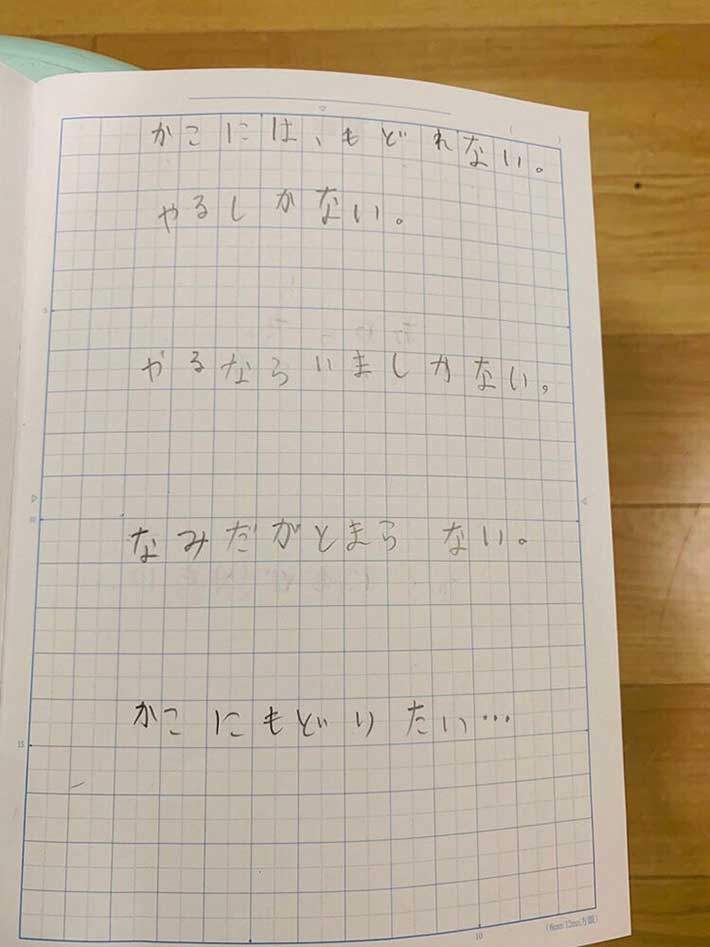 かこには、もどれない。
やるしかない。
5
やるならいましかない。
10
なみだがとまらない。
かこにもどりたい…
15
10